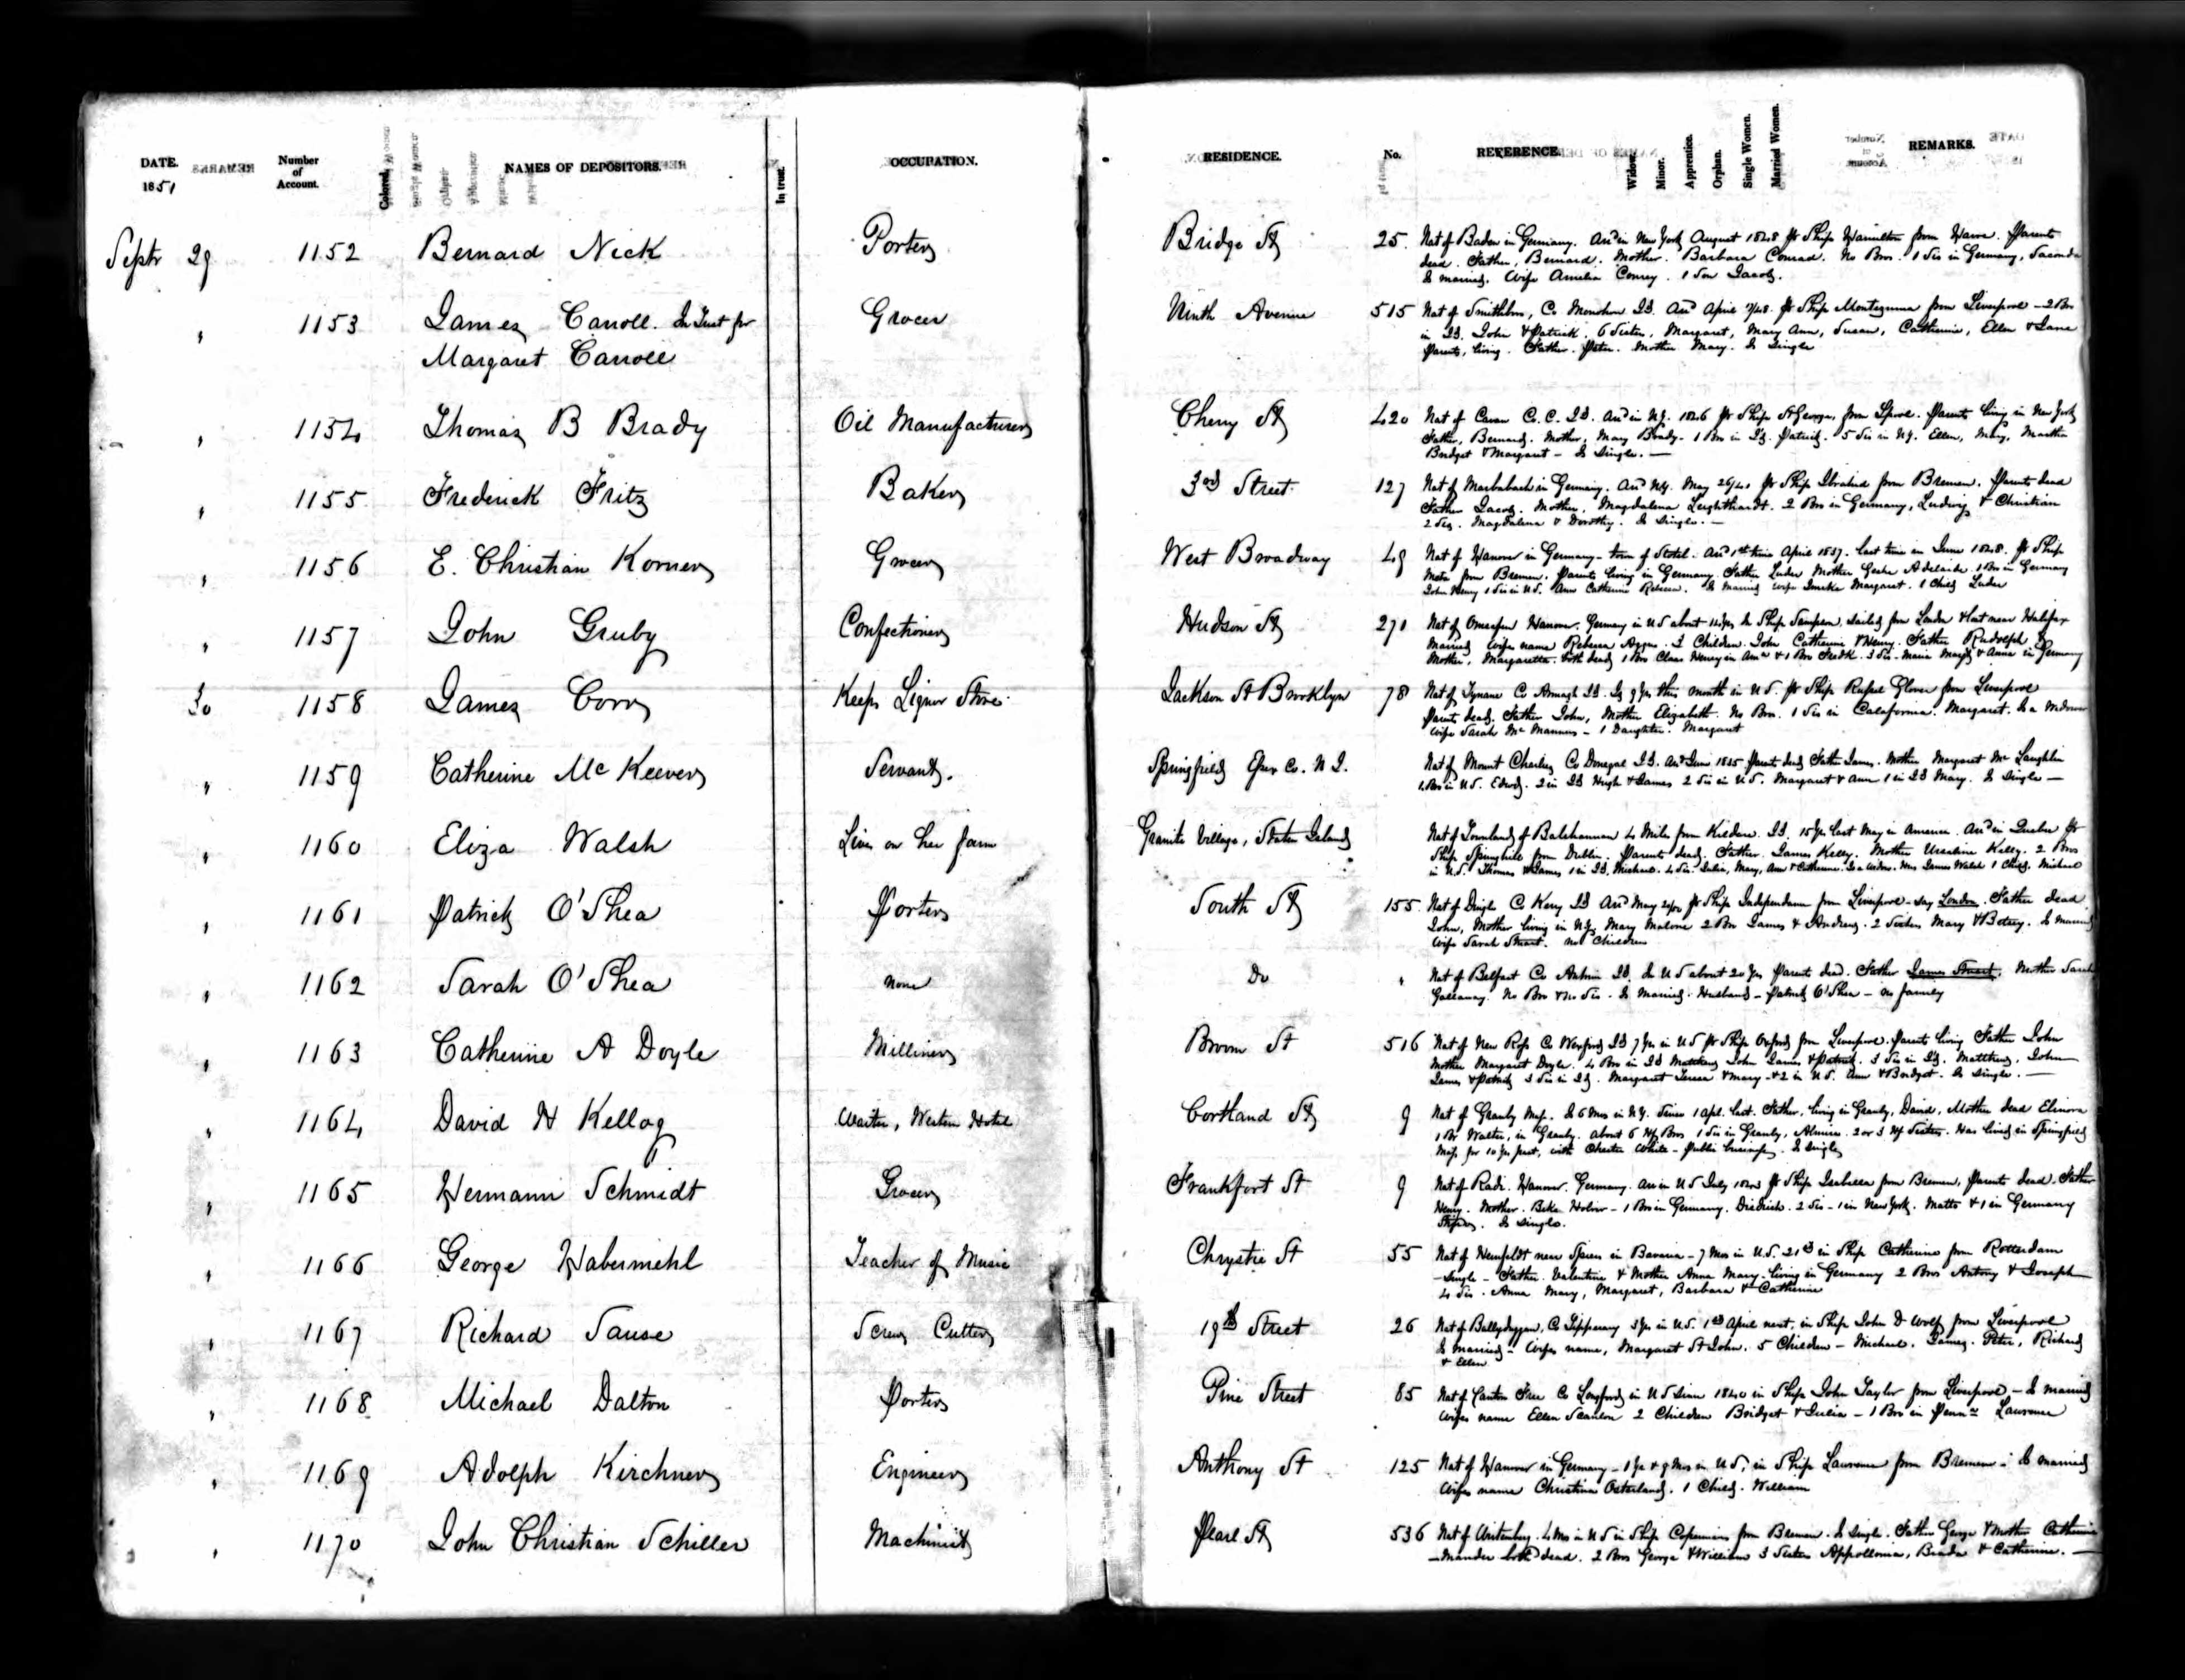 DATE. Number of Account. Colored. NAMES OF DEPOSITORS. In trust. OCCUPATION. RESIDENCE. No. REFERENCE. Widow. Minor. Apprentice. Orphan. Single Women. Married Women. REMARKS.
1851
Septr 29 1152 Bernard Nick Porter Bridge St 25. Nat of Baden in Germany. Arrd in New York August 1848 pr Ship Hamilton from Havre. Parents
dead. Father, Bernard. Mother. Barbara Conrad. No Bros. 1 Sis in Germany,
Is married. Wife Amelia Conrey. 1 Son Jacob.
" 1153 James Carroll. In Trust for Grocer Ninth Avenue 515 Nat of Smithboro, Co Monohan Id. Arrd April /48 pr Ship Montezuma from Liverpool - 2 Bros
Margaret Carroll in Id. John & Patrick. 6 Sisters, Margaret, Mary Ann, Susan, Catherine, Ellen & Jane
Parents, living. Father. Peter. Mother Mary. Is Single
" 1154 Thomas B Brady Oil Manufacturer Cherry St 420 Nat of Cavan Co. C. Id. Arrd in N.Y. 1846 pr Ship St George, from Lpool. Parents living in New York
Father, Bernard. Mother, Mary Brady. 1 Bro in Id. Patrick. 5 Sis in N.Y. Ellen, Mary, Martha
Bridget & Margaret - Is Single. -
" 1155 Frederick Fritz Baker 3rd Street 127 Nat of in Germany. Arrd N.Y. May pr Ship from Bremen. Parents dead
Father Jacob. Mother, Magdalena Leighthardt. 2 Bros in Germany, Ludwig & Christian
2 Sis. Magdalena & Dorothy. Is Single. -
" 1156 E. Christian Korner Grocer West Broadway 49 Nat of Hanover in Germany - town of Stotel. Arrd 1st time April 1837. last time in June 1848. pr Ship
Meta from Bremen. Parents living in Germany. Father Luder Mother Gesche Adelaide. 1 Bro in Germany
John Henry 1 Sis in U.S. Ann Catherine Rebecca. Is Married Wife Margaret. 1 Child Luder
" 1157 John Gruby Confectioner Hudson St 271 Nat of Hanover. Germany in U S about 14 yrs In Ship Sampson, sailed from London & lost near Halifax
Married Wifes name Rebecca. 3 Children. John Catherine & Henry. Father Rudolph
Mother, Margaretta. both dead 1 Bro Claus Henry in Ama & 1 Bro Fredk. 3 Sis - Maria Margt & Anna in Germany
30 1158 James Corr Keeps Liquor Store Jackson St Brooklyn 78 Nat of Tynane Co Armagh Id. Is 9 yrs this month in U.S. pr Ship Glover from Liverpool
Parents dead. Father John, Mother Elizabeth. No Bro. 1 Sis in California. Margaret. Is a Widower
Wife Sarah McManus - 1 Daughter. Margaret
" 1159 Catherine Mc Keever Servant. Springfield Essex Co. N J. Nat of Mount Charles Co Donegal Id. Arrd June 1845 Parents dead Father James. Mother Margaret Mc Laughlin
1 Bro in U.S. Edwd. 2 in Id Hugh & James 2 Sis in U.S. Margaret & Ann 1 in Id Mary. Is Single -
" 1160 Eliza Walsh Lives on her farm Granite Village, Staten Island Nat of Townland of 4 Miles from Kildare Id. 15 yrs last May in America. Arrd in Quebec pr
Ship Springhill from Dublin. Parents dead. Father. James Kelly. Mother Kelly. 2 Bros
in U.S. Thomas & James 1 in Id. Michael. 4 Sis. Julia, Mary, Ann & Catherine. Is a Widow. Hus James Walsh 1 Child. Michael
" 1161 Patrick O'Shea Porter South St 155 Nat of Dingle Co Kerry Id Arrd May pr Ship Independance from Liverpool - say London. Father dead
John, Mother living in N.Y. Mary Malone 2 Bro James & Andrew. 2 Sisters Mary & Betsey. Is married
Wife Sarah Stuart. no Children
" 1162 Sarah O'Shea none Do " Nat of Belfast Co Antrim Id. In U S about 20 yrs Parents dead. Father James Stuart. Mother Sarah
Gallaway. No Bro & no Sis. Is Married. Husband - Patrick O'Shea - no family
" 1163 Catherine A Doyle Milliner Broom St 516 Nat of New Ross Co Wexford Id 7 yrs in U S pr Ship Oxford from Liverpool. Parents living Father John
Mother Margaret Doyle. 4 Bro in Id Matthew John James & Patrick. 3 Sis in Id. Matthew, John
James & Patrick 3 Sis in Id. Margaret Teresa & Mary - & 2 in U.S. Ann & Bridget. Is Single. -
" 1164 David H Kellog Waiter, Western Hotel Cortland St 9 Nat of Granby Mass. Is 6 Mos in N.Y. Since 1 Apl. last. Father, living in Granby, David, Mother dead Elinora
1 Br Walter, in Granby. about 6 Hf Bros 1 Sis in Granby, Almira. 2 or 3 Hf Sisters. Has lived in Springfield
Mass for 10 yrs past, with Chester White - Public business. Is Single
" 1165 Hermann Schmidt Grocer Frankfort St 9 Nat of Hanover. Germany. arr in U S July pr Ship Isabella from Bremen, Parents dead. Father
Henry. Mother. Beka - 1 Bro in Germany. Diedrich. 2 Sis - 1 in New York. Matta & 1 in Germany
Is Single.
" 1166 George Habermehl Teacher of Music Chrystie St 55 Nat of near Spires in Bavaria - 7 Mos in U.S. 21st in Ship Catherine from Rotterdam
- Single - Father Valentine & Mother Anna Mary - living in Germany 2 Bros Antony & Joseph
4 Sis. Anna Mary, Margaret, Barbara & Catherine
" 1167 Richard Sause Screw Cutter 19th Street 26 Nat of Co Tipperary 3 yrs in U.S. 1st April next, in Ship John D Wolf from Liverpool
Is Married - Wifes name, Margaret St John. 5 Children - Michael. James. Peter, Richard
& Ellen
" 1168 Michael Dalton Porter Pine Street 85 Nat of Co Longford in U S Since 1840 in Ship John Taylor from Liverpool - Is married
Wifes name Ellen Scanlon 2 Children Bridget & Julia - 1 Bro in Penna Lawrence
" 1169 Adolph Kirchner Engineer Anthony St 125 Nat of Hanover in Germany - 1 yr & 9 Mos in U S, in Ship Lawrence from Bremen - Is married
Wifes name Christina Osterland. 1 Child. William
" 1170 John Christian Schiller Machinist Pearl St 536 Nat of. 4 Mos in U S in Ship Copernicus from Bremen. Is Single. Father George & Mother Catherine
Mander both dead. 2 Bros George & William 3 Sisters Appollonia, & Catherine. -